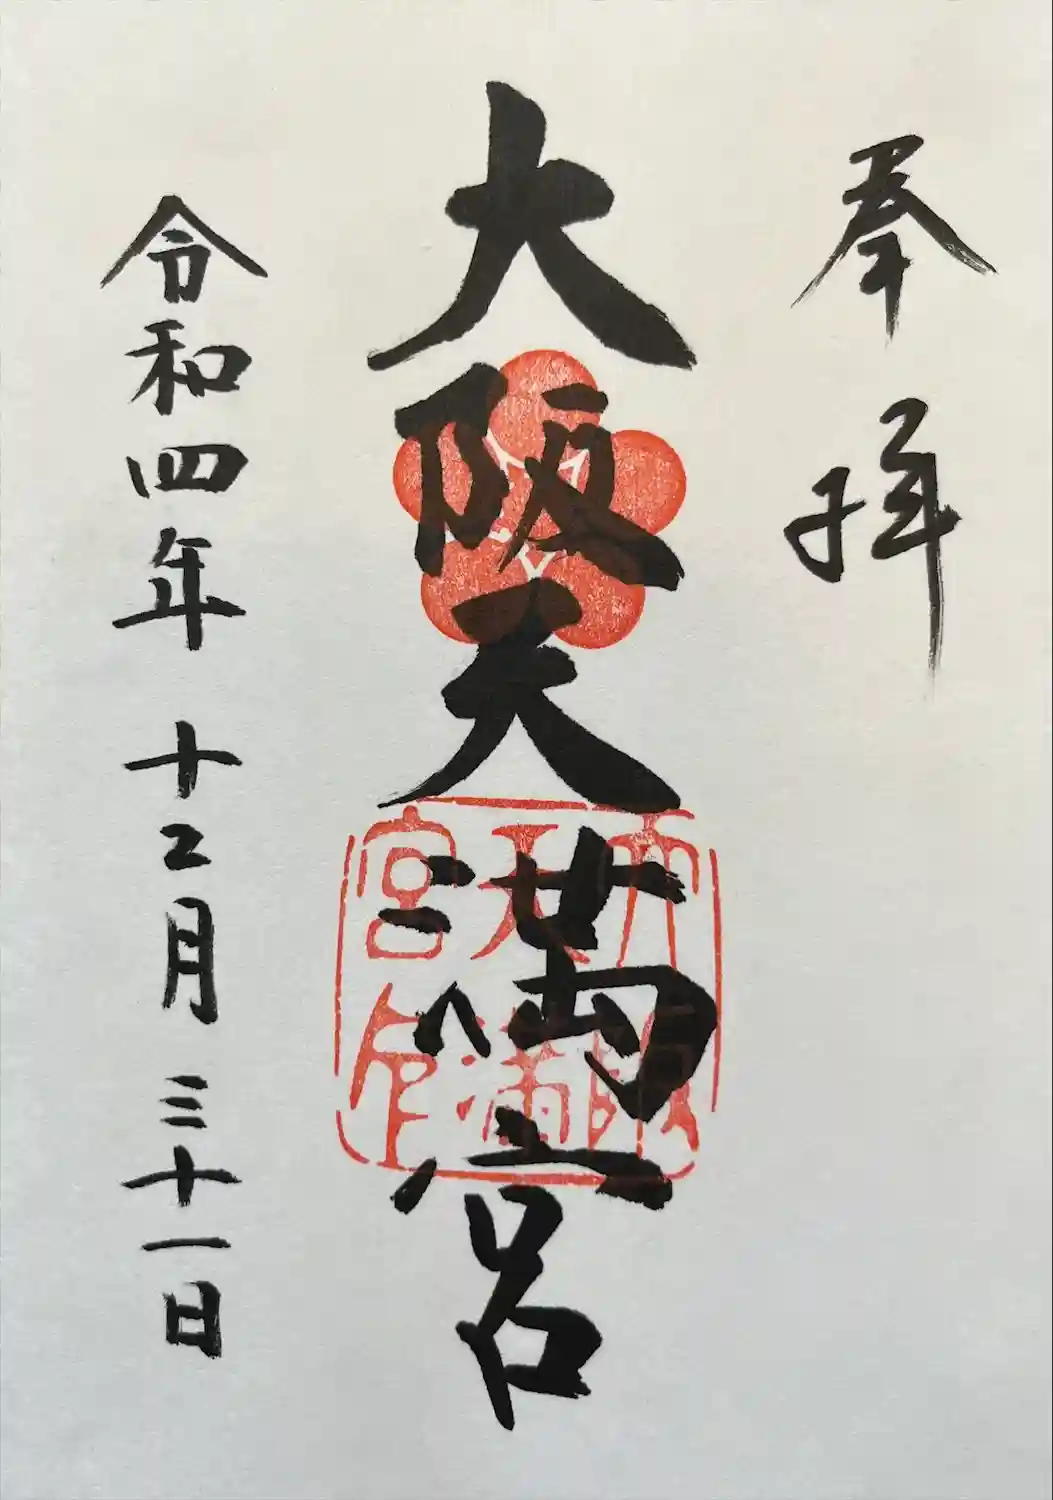 奉拝
大阪天満宮
大阪
天満
宮印
令和四年 十二月 三十一日